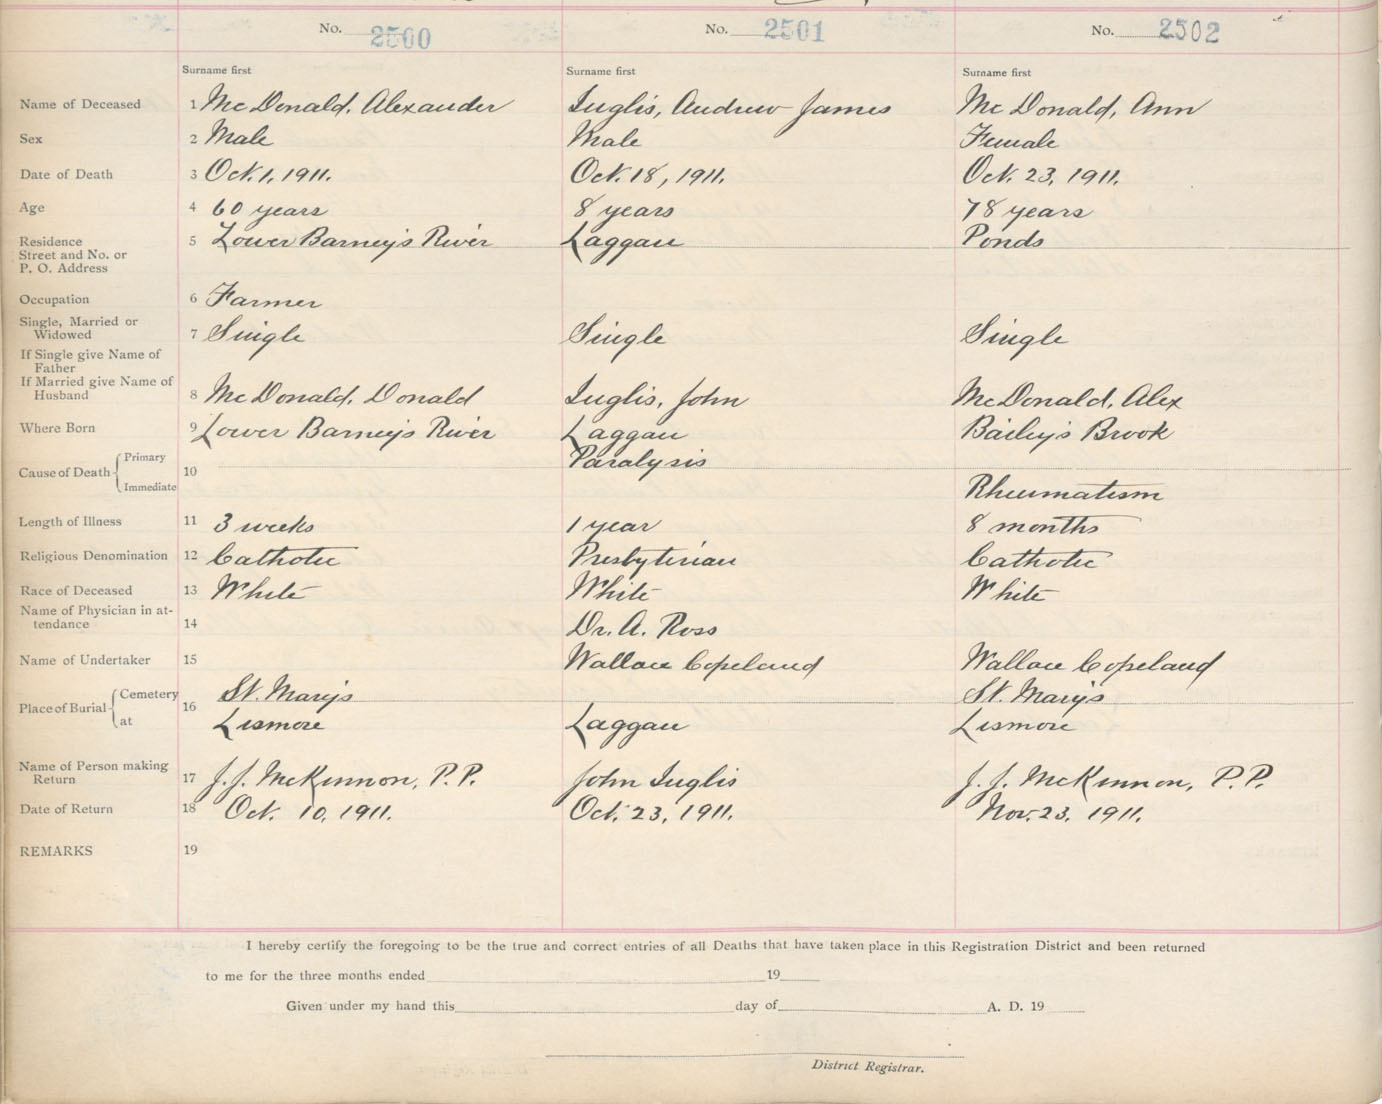 No. 2500 No. 2501 No. 2502
Surname first Surname first Surname first
Name of Deceased 1 McDonald, Alexander Inglis, Andrew James McDonald, Ann
Sex 2 Male Male Female
Date of Death 3 Oct. 1, 1911. Oct. 18, 1911. Oct. 23, 1911.
Age 4 60 years 8 years 78 years
Residence 5 Lower Barney's River Laggan Ponds
Street and No. or
P. O. Address
Occupation 6 Farmer
Single, Married or
Widowed 7 Single Single Single
If Single give Name of
Father
If Married give Name of
Husband 8 McDonald, Donald Inglis, John McDonald, Alex
Where Born 9 Lower Barney's River Laggan Bailey's Brook
Primary Paralysis
Cause of Death 10
Immediate Rheumatism
Length of Illness 11 3 weeks 1 year 8 months
Religious Denomination 12 Catholic Presbyterian Catholic
Race of Deceased 13 White White White
Name of Physician in at-
tendance 14 Dr. A. Ross
Name of Undertaker 15 Wallace Copeland Wallace Copeland
Cemetery St. Mary's St. Mary's
Place of Burial 16
at Lismore Laggan Lismore
Name of Person making
Return 17 J. J. McKinnon, P.P. John Inglis J. J. McKinnon, P.P.
Date of Return 18 Oct. 10, 1911. Oct. 23, 1911. Nov. 23, 1911.
REMARKS 19
I hereby certify the foregoing to be the true and correct entries of all Deaths that have taken place in this Registration District and been returned
to me for the three months ended 19
Given under my hand this day of A. D. 19
District Registrar.